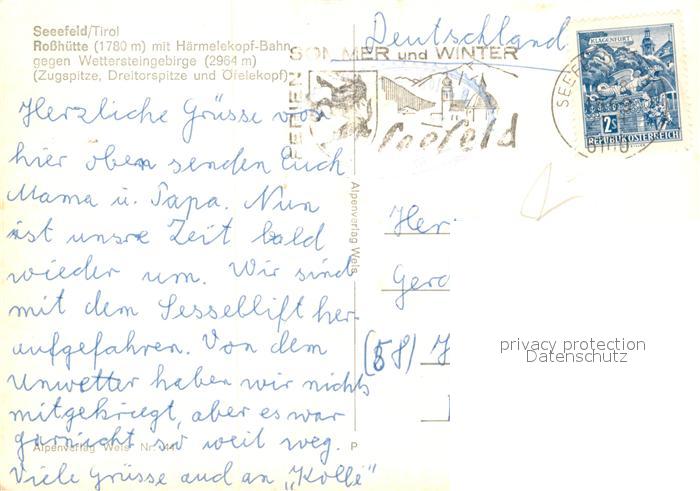 Seeefeld/Tirol
Roßhütte (1780 m) mit Härmelekopf-Bahn
gegen Wettersteingebirge (2964 m)
(Zugspitze, Dreitorspitze und Öfelekopf)
Deutschland
SOMMER und WINTER
FERIEN
Seefeld
KLAGENFURT
2S
REPUBLIK ÖSTERREICH
Herzliche Grüsse von
hier oben senden Euch
Mama u. Papa. Nun
ist unsre Zeit bald
wieder um. Wir sind
mit dem Sessellift her-
aufgefahren. Von dem
Unwetter haben wir nichts
mitgekriegt, aber es war
garnicht so weit weg.
Viele Grüsse auch an „Kolle"
Alpenverlag Wels
Her
Gero
(58)
privacy protection
Datenschutz
Alpenverlag Wels Nr. 44
P